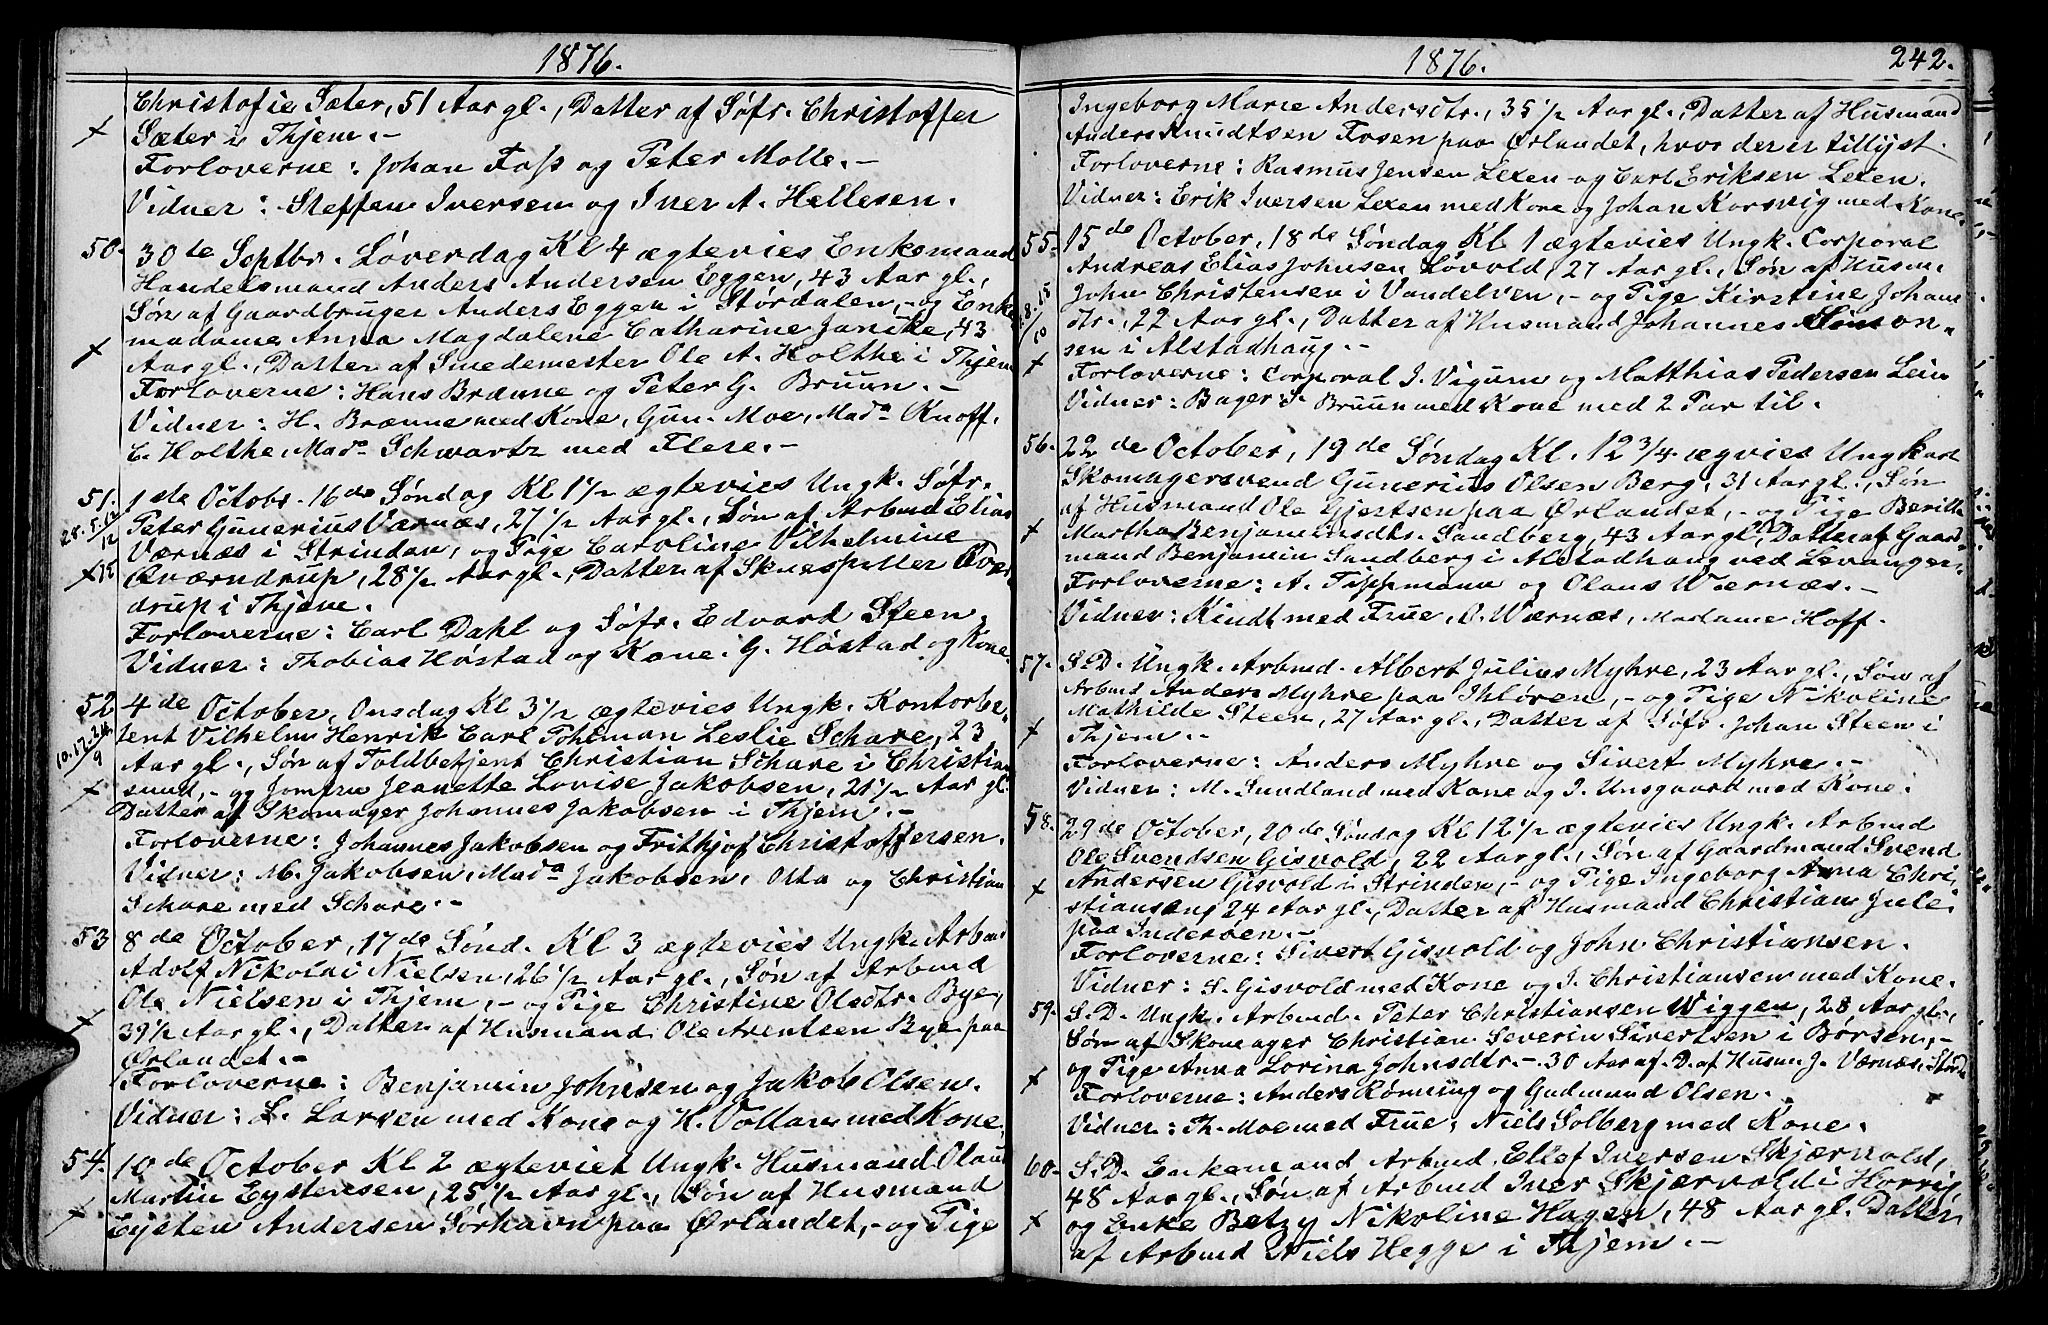 1876.
Christofie Sæter, 51 Aar gl., Datter af Søfr. Christoffer
Sæter i Thjem.-
Forloverne: Johan Foss og Peter Molle.-
Vidner: Steffen Iversen og Iver A. Hellesen.
50. 30te Septbr. Løverdag Kl 4 ægtevies Enkemand
Handelsmand Anders Andersen Eggen, 43 Aar gl.,
Søn af Gaardbruger Anders Eggen i Størdalen,- og Enke
madame Anna Magdalene Catharine Janike, 43
Aar gl., Datter af Smedemester Ole A. Holthe i Thjem
Forloverne: Hans Brænne og Peter G. Bruun.-
Vidner: H. Brænne med Kone, Gun. Moe, Mada Knoff.
C. Holthe, Mada Schwartz med Flere.-
51. 1de Octobr. 16de Søndag Kl 1 1/2 ægtevies Ungk. Søfr.
Peter Gunerius Værnæs, 27 1/2 Aar gl., Søn af Arbmd Elias
Værnæs i Strindan, og Pige Caroline Vilhelmine
Qværndrup, 28 1/2 Aar gl., Datter af Skuespiller Qværn
drup i Thjem.
Forloverne: Carl Dahl og Søfr. Edvard Steen.
Vidner: Thobias Høstad og Kone. G. Høstad og Kone.
52 4de October, Onsdag Kl 3 1/2 ægtevies Ungk. Kontorbe-
tent Vilhelm Henrik Carl Pohlman Leslie Schare, 23
10.17.24/9
Aar gl., Søn af Toldbetjent Christian Schare i Christian
sund,- og Jomfru Jeanette Lovise Jakobsen, 21 1/2 Aar gl.
Datter af Skomager Johannes Jakobsen i Thjem.-
Forloverne: Johannes Jakobsen og Frithjof Christoffersen.
Vidner: M. Jakobsen, Mada Jakobsen, Osta og Christian
Schare med Schare.-
53 8de October, 17de Sønd. Kl 3 ægtevies Ungk. Arbm.
Adolf Nikolai Nielsen, 26 1/2 Aar gl., Søn af Arbmd
Ole Nielsen i Thjem,- og Pige Christine Olsdtr. Bye,
39 1/2 Aar gl., Datter af Husmand Ole Arentsen Bye paa
Ørlandet.-
Forloverne: Benjamin Johnsen og Jakob Olsen.
Vidner: L. Larsen med Kone og H. Vollan med Kone.
54. 10de October Kl 2 ægteviet Ungk. Husmand Olaus
Martin Eystensen, 25 1/2 Aar gl., Søn af Husmand
Eysten Andersen Sørhavn paa Ørlandet,- og Pige
1876. 242.
Ingeborg Marie Andersdtr., 35 1/2 Aar gl., Datter af Husmand
Anders Knudtsen Fosen paa Ørlandet, hvor der er tillyst.
Forloverne: Rasmus Jensen Lexen og Carl Eriksen Lexen.
Vidner: Erik Iversen Lexen med Kone og Johan Korsvig med Kone.
55. 15de October, 18de Søndag Kl 1 ægtevies Ungk. Corporal
Andreas Elias Johnsen Løvold, 27 Aar gl., Søn af Husm.
John Christensen i Vandelven,- og Pige Kirstine Johans
dtr., 22 Aar gl., Datter af Husmand Johannes Simon-
sen i Alstadhaug.-
Forloverne: Corporal J. Vigum og Matthias Pedersen Lein
Vidner: Bager S. Bruun med Kone med 2 Par til.
56. 22de October, 19de Søndag Kl. 12 3/4. ægvies Ungkarl
Skomagersvend Gunerius Olsen Berg, 31 Aar gl., Søn
af Husmand Ole Gjertsen paa Ørlandet,- og Pige Berith
Martha Benjaminsdtr. Sandberg, 43 Aar gl., Datter af Gaard-
mand Benjamin Sandberg i Alstadhaug ved Levanger.
Forloverne: A. Tippmann og Olaus Wærnæs.-
Vidner: Kindt med Frue, O. Wærnæs, Madame Hoff.
57. S.D. Ungk. Arbmd. Albert Julius Myhre, 23 Aar gl., Søn af
Arbmd Anders Myhre paa Ihløren,- og Pige Nikoline
Mathilde Steen, 27 Aar gl., Datter af Søfr. Johan Steen i
Thjem.-
Forloverne: Anders Myhre og Sivert Myhre.-
Vidner: M. Sundland med Kone og J. Unsgaard med Kone.
58. 29de October, 20de Søndag Kl 12 1/2 ægtevies Ungk. Arbmd
Ole Svendsen Gisvold, 22 Aar gl., Søn af Gaardmand Svend
Andersen Gisvold i Strinden,- og Pige Ingeborg Anna Chri-
stiansen, 24 Aar gl., Datter af Husmand Christian Jule
paa Inderøen.-
Forloverne: Sivert Gisvold og John Christiansen.
Vidner: S. Gisvold med Kone og J. Christiansen med Kone.
59. S.D. Ungk. Arbmd. Peter Christiansen Wiggen, 28 Aar gl.,
Søn af Skomager Christian Severin Sivertsen i Børsen,-
og Pige Anna Lorina Johnsdtr.- 30 Aar af.D. af Husm J. Værnæs i Størd
Forloverne: Anders Rønning og Gudmund Olsen.
Vidner: Th. Moe med Frue, Niels Solberg med Kone.
60. S.D. Enkemand Arbmd. Ellef Iversen Skjærvold,
48 Aar gl., Søn af Arbmd Iver Skjærvold i Horrig
og Enke Betzy Nikoline Hagen, 48 Aar gl. Datter
af Arbmd Niels Hegge i Thjem.-